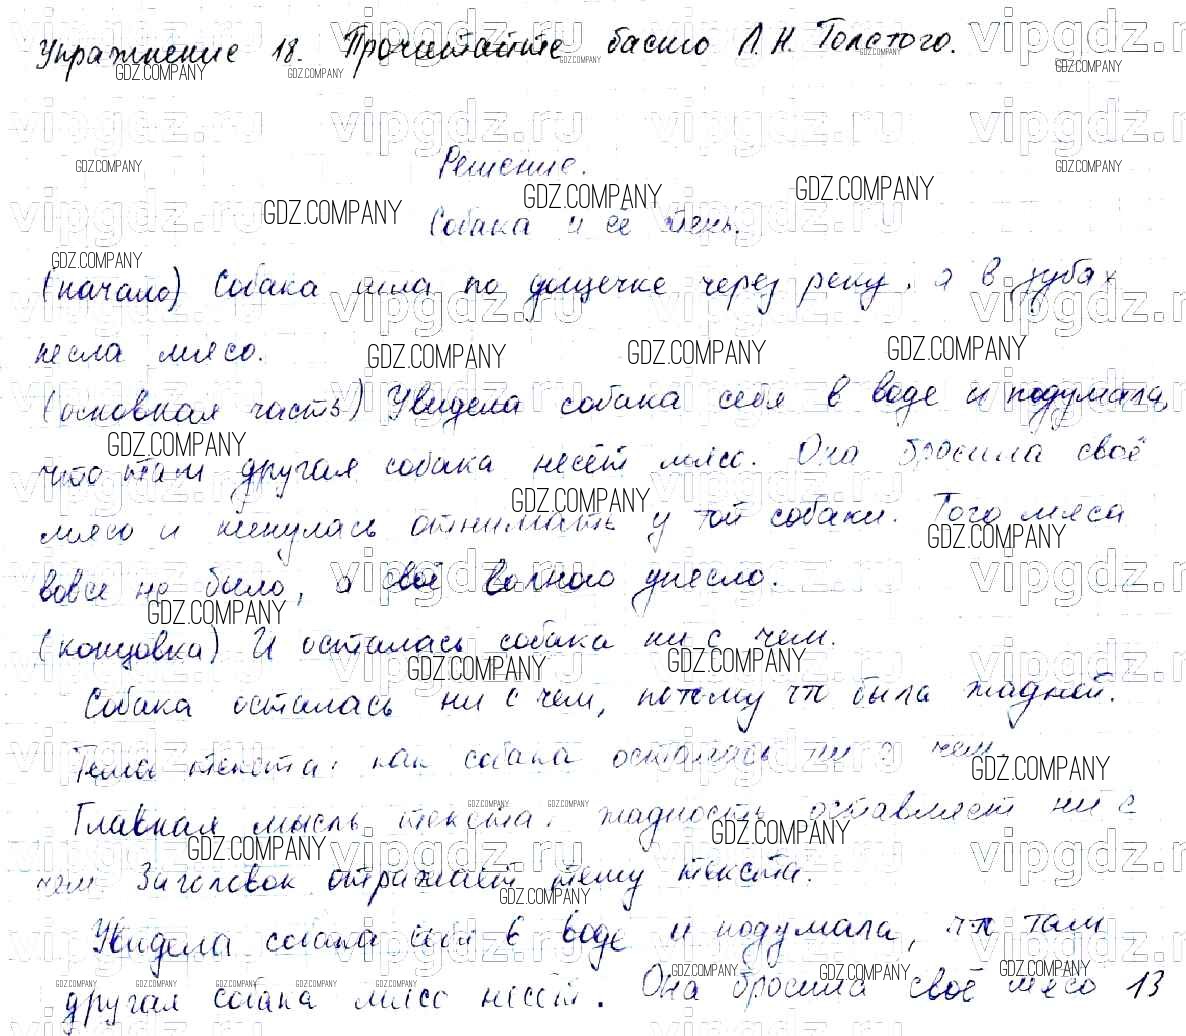 Упражнение 18. Прочитайте басню Л.Н. Толстого.
Решение.
Собака и её тень.
(начало) Собака шла по дощечке через реку, а в зубах
несла мясо.
(основная часть) Увидела собака себя в воде и подумала,
что там другая собака несёт мясо. Она бросила своё
мясо и кинулась отнимать у той собаки. Того мяса
вовсе не было, а своё волною унесло.
(концовка) И осталась собака ни с чем.
Собака осталась ни с чем, потому что была жадной.
Тема текста: как собака осталась ни с чем.
Главная мысль текста: жадность оставляет ни с
чем. Заголовок отражает тему текста.
Увидела собака себя в воде и подумала, что там
другая собака мясо несёт. Она бросила своё мясо 13